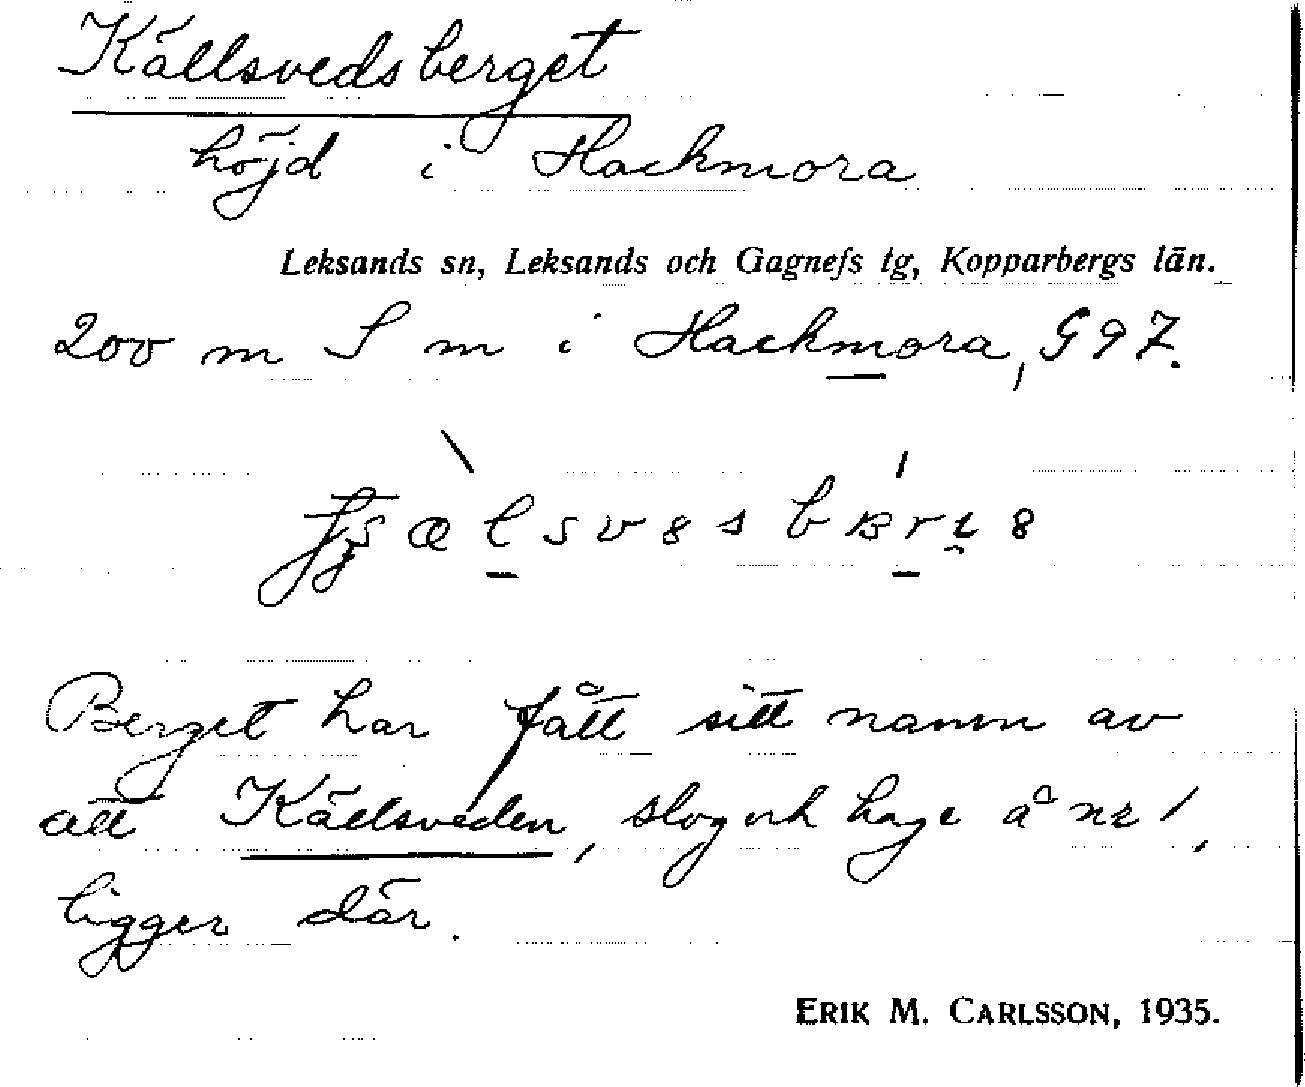 Källsvedsberget
höjd i Hackmora
Leksands sn, Leksands och Gagnefs tg, Kopparbergs län.
200 m S m i Hackmora, G 97.
Berget har fått sitt namn av
att Källsveden, slog och hage å nr 1,
ligger där.
ERIK M. CARLSSON, 1935.